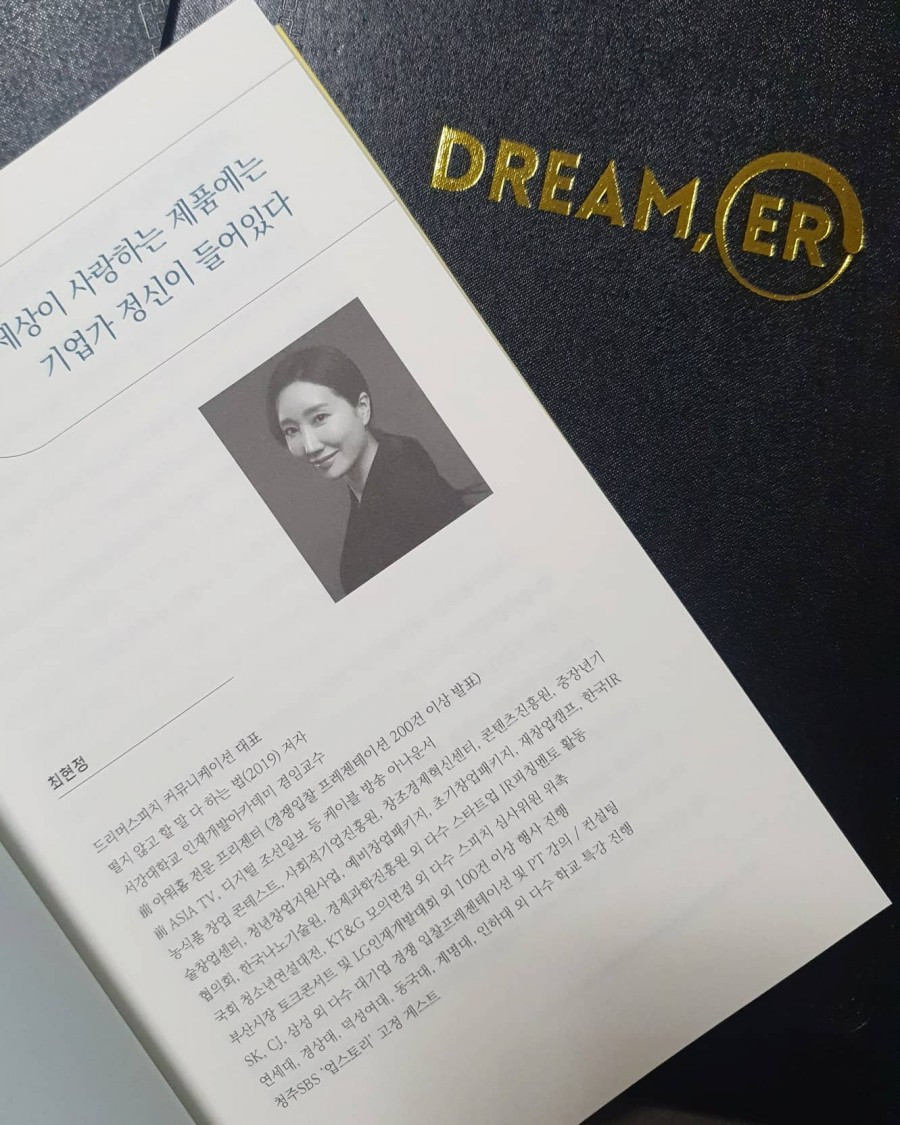 세상이 사랑하는 제품에는
기업가 정신이 들어있다
DREAM,ER
최현정
드리머스피치 커뮤니케이션 대표
떨지 않고 할 말 다 하는 법(2019) 저자
서강대학교 인재개발아카데미 겸임교수
前 아워홈 전문 프리젠터 (경쟁입찰 프레젠테이션 200건 이상 발표)
前 ASIA TV, 디지털 조선일보 등 케이블 방송 아나운서
농식품 창업 콘테스트, 사회적기업진흥원, 창조경제혁신센터, 콘텐츠진흥원, 중장년기
술창업센터, 청년창업지원사업, 예비창업패키지, 초기창업패키지, 재창업캠프, 한국IR
협의회, 한국나노기술원, 경제과학진흥원 외 다수 스타트업 IR피칭멘토 활동
국회 청소년연설대전, KT&G 모의면접 외 다수 스피치 심사위원 위촉
부산시장 토크콘서트 및 LG인재개발대회 외 100건 이상 행사 진행
SK, CJ, 삼성 외 다수 대기업 경쟁 입찰프레젠테이션 및 PT 강의 / 컨설팅
연세대, 경상대, 덕성여대, 동국대, 계명대, 인하대 외 다수 학교 특강 진행
청주SBS '업스토리' 고정 게스트